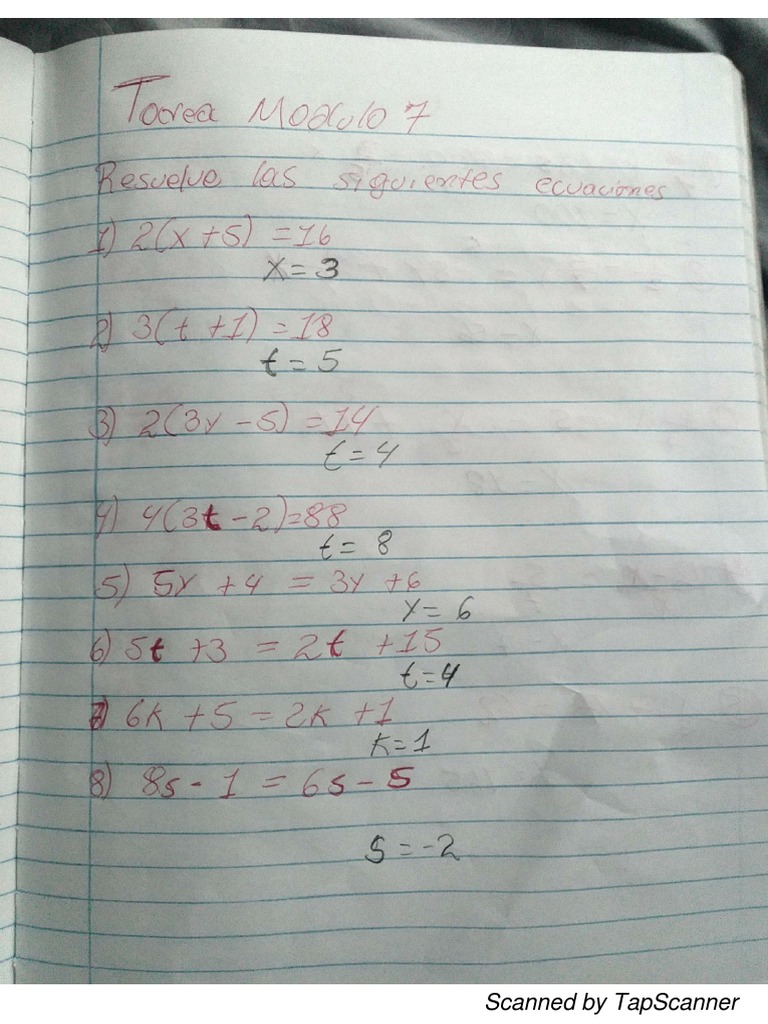 Tarea Modulo 7
Resuelve las siguientes ecuaciones
1) 2(x+5) = 16
x = 3
2) 3(t +1) = 18
t = 5
3) 2(3y - 5) = 14
t = 4
4) 4(3t - 2) = 88
t = 8
5) 5y + 4 = 3y + 6
y = 6
6) 5t + 3 = 2t + 15
t = 4
7) 6k + 5 = 2k + 1
k = 1
8) 8s - 1 = 6s - 5
s = -2
Scanned by TapScanner